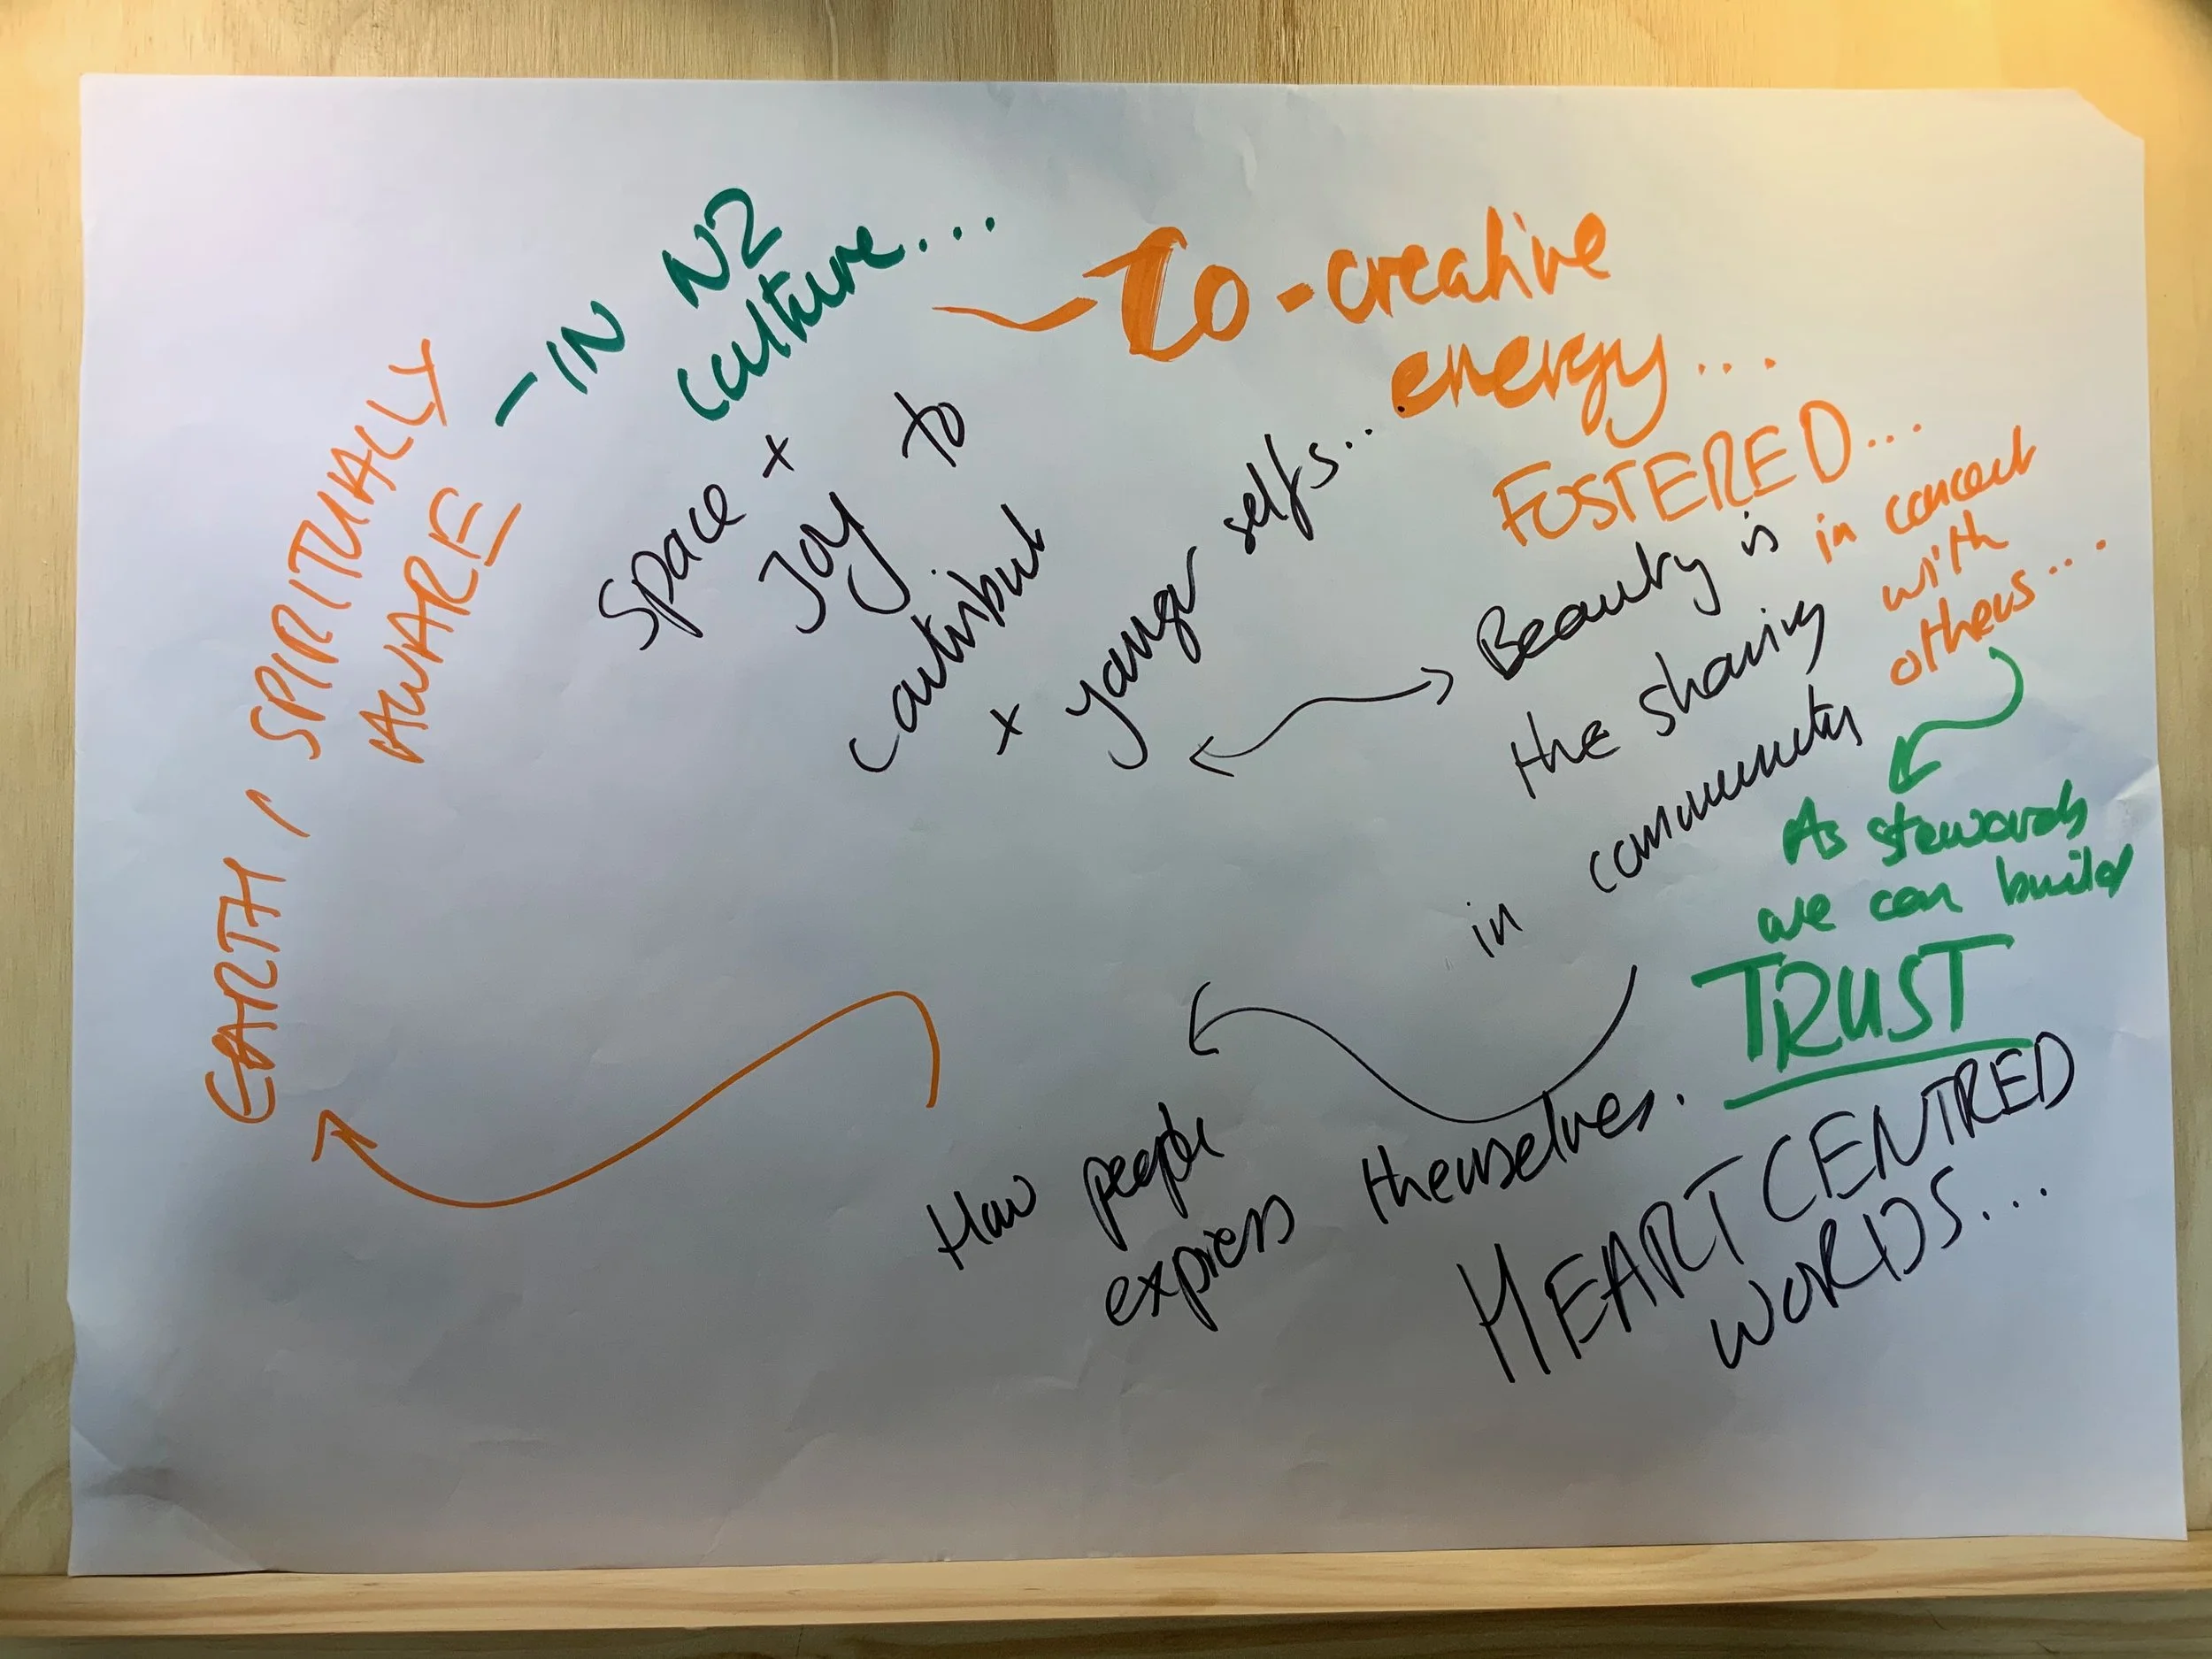 EARTH, SPIRITUALLY
AWARE
- IN NZ
culture...
Co-creative
energy...
FOSTERED...
Space +
Joy to
contribut
+ younger selfs...
Beauty is
the sharing
in community
in concert
with
others....
As stewards
we can build
TRUST
How people
express themselves.
HEART CENTRED
WORDS...